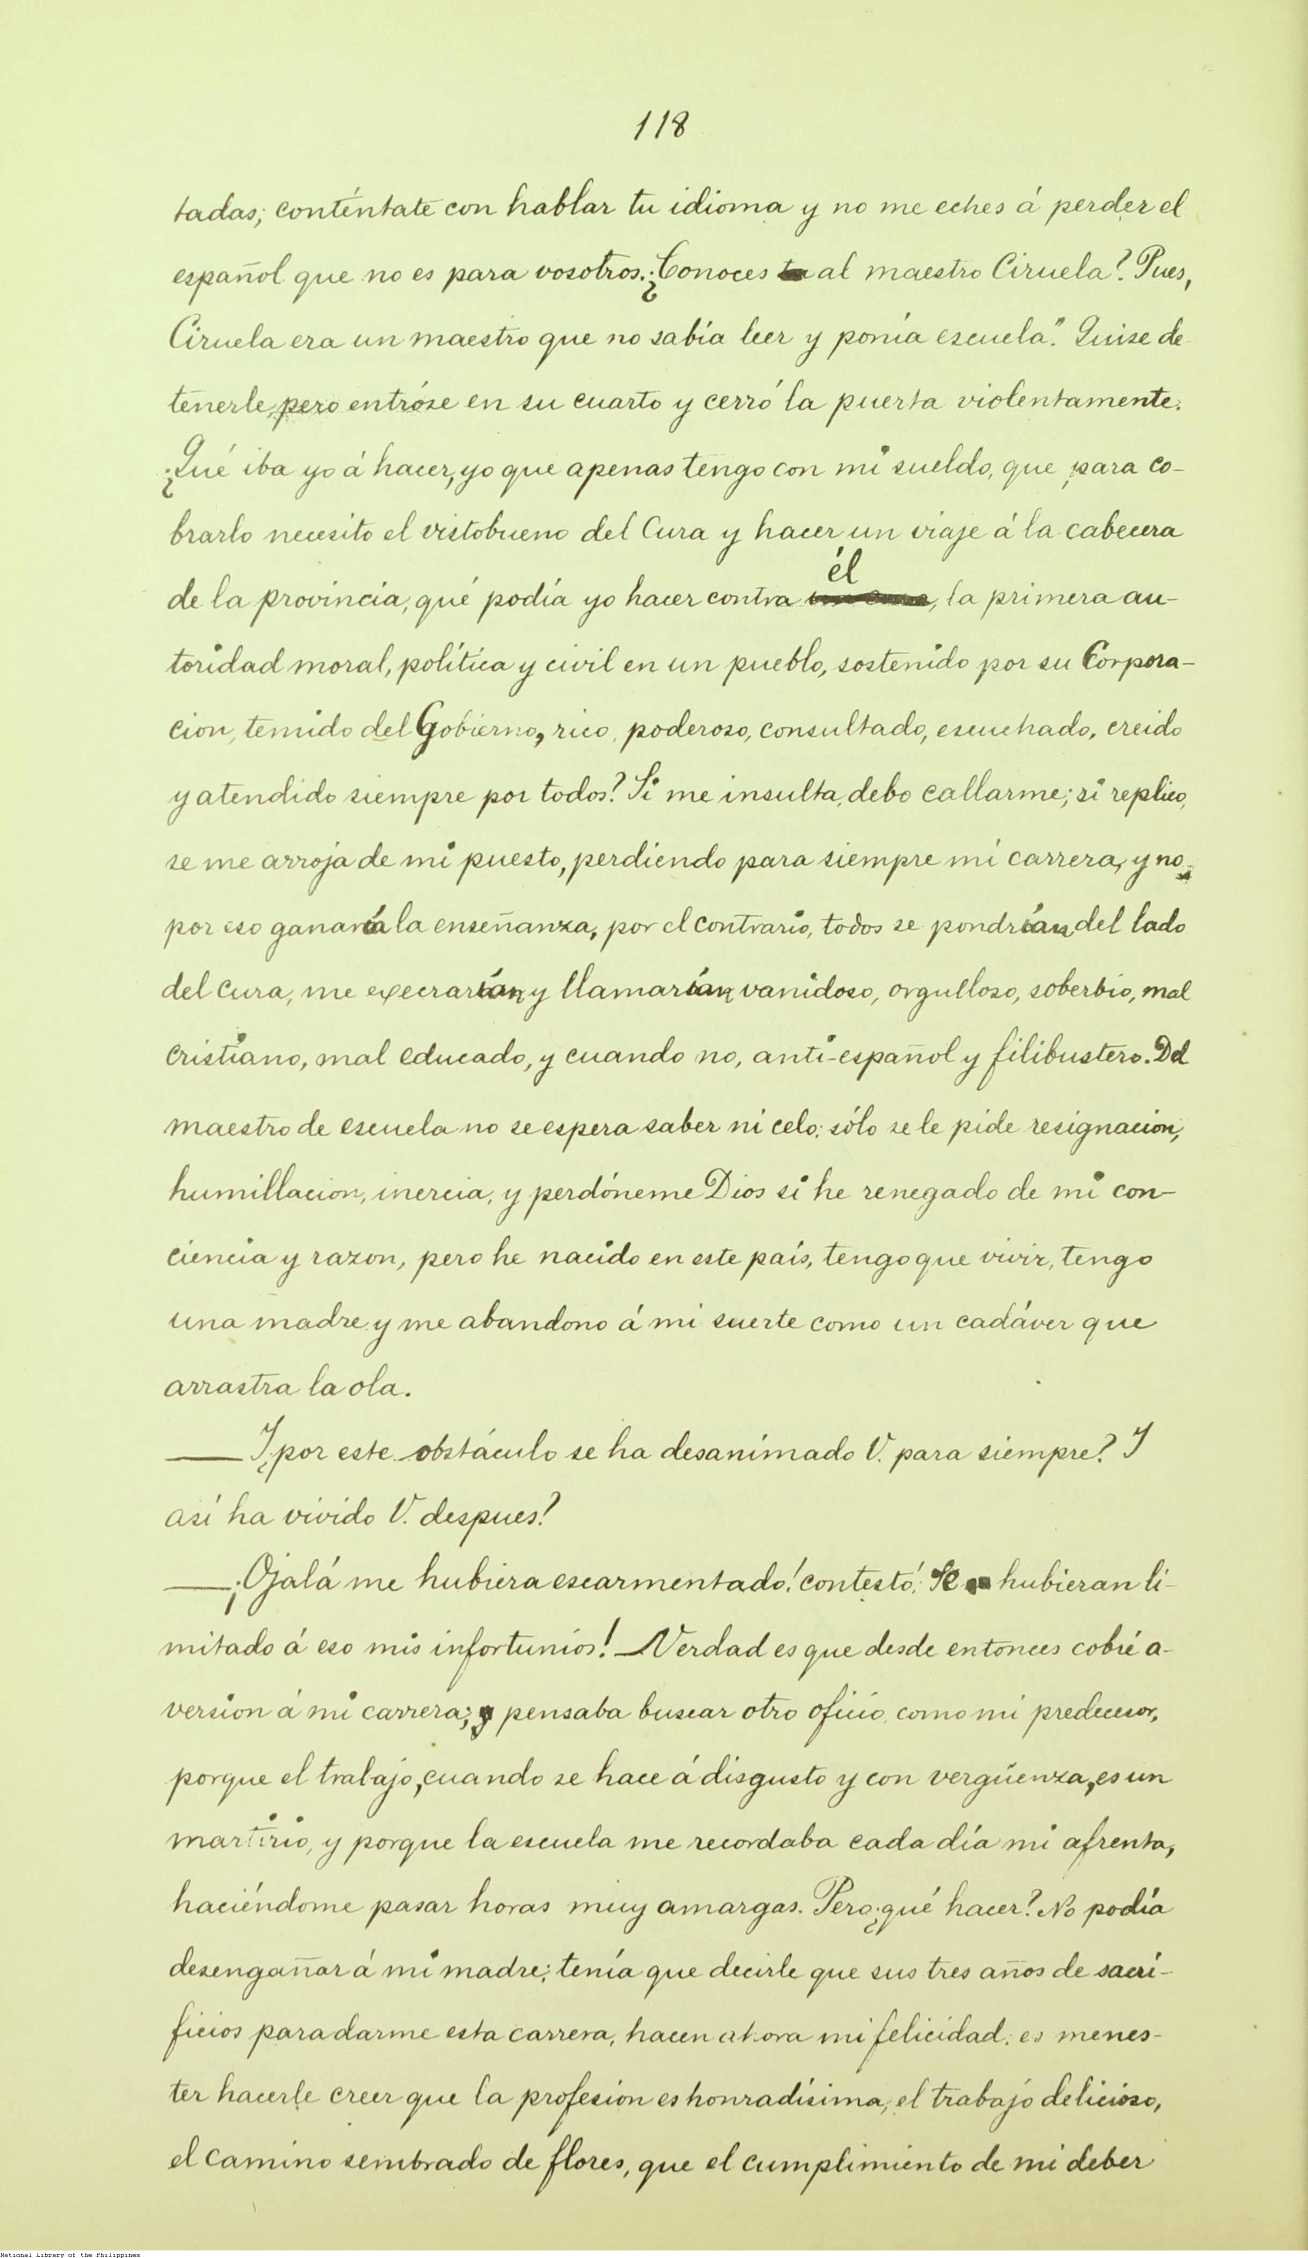 118
tadas; conténtate con hablar tu idioma y no me eches á perder el
español que no es para vosotros. ¿Conoces al maestro Ciruela? Pues,
Ciruela era un maestro que no sabía leer y ponía escuela". Quise de-
tenerle, pero entróse en su cuarto y cerró la puerta violentamente.
¿Qué iba yo á hacer, yo que apenas tengo con mi sueldo, que para co-
brarlo necesito el vistobueno del Cura y hacer un viaje á la cabecera
de la provincia, qué podía yo hacer contra él, la primera au-
toridad moral, política y civil en un pueblo, sostenido por su Corpora-
cion, temido del Gobierno, rico, poderoso, consultado, escuchado, creido
y atendido siempre por todos? Si me insulta, debo callarme; si replico,
se me arroja de mi puesto, perdiendo para siempre mi carrera, y no
por eso ganaría la enseñanza, por el contrario, todos se pondrían del lado
del cura, me execrarían y llamarían vanidoso, orgulloso, soberbio, mal
cristiano, mal educado, y cuando no, anti-español y filibustero. Del
maestro de escuela no se espera saber ni celo; sólo se le pide resignacion,
humillacion, inercia, y perdóneme Dios si he renegado de mi con-
ciencia y razon, pero he nacido en este país, tengo que vivir, tengo
una madre y me abandono á mi suerte como un cadáver que
arrastra la ola.
— ¿Y por este obstáculo se ha desanimado V. para siempre? Y
así ha vivido V. despues?
— ¡Ojalá me hubiera escarmentado! contestó; Se hubieran li-
mitado á eso mis infortunios! — Verdad es que desde entonces cobré a-
version á mi carrera; pensaba buscar otro oficio como mi predecesor,
porque el trabajo, cuando se hace á disgusto y con vergüenza, es un
martirio, y porque la escuela me recordaba cada día mi afrenta,
haciéndome pasar horas muy amargas. Pero ¿qué hacer? No podía
desengañar á mi madre; tenía que decirle que sus tres años de sacri-
ficios para darme esta carrera, hacen ahora mi felicidad; es menes-
ter hacerle creer que la profesion es honradísima, el trabajo delicioso,
el camino sembrado de flores, que el cumplimiento de mi deber
National Library of the Philippines